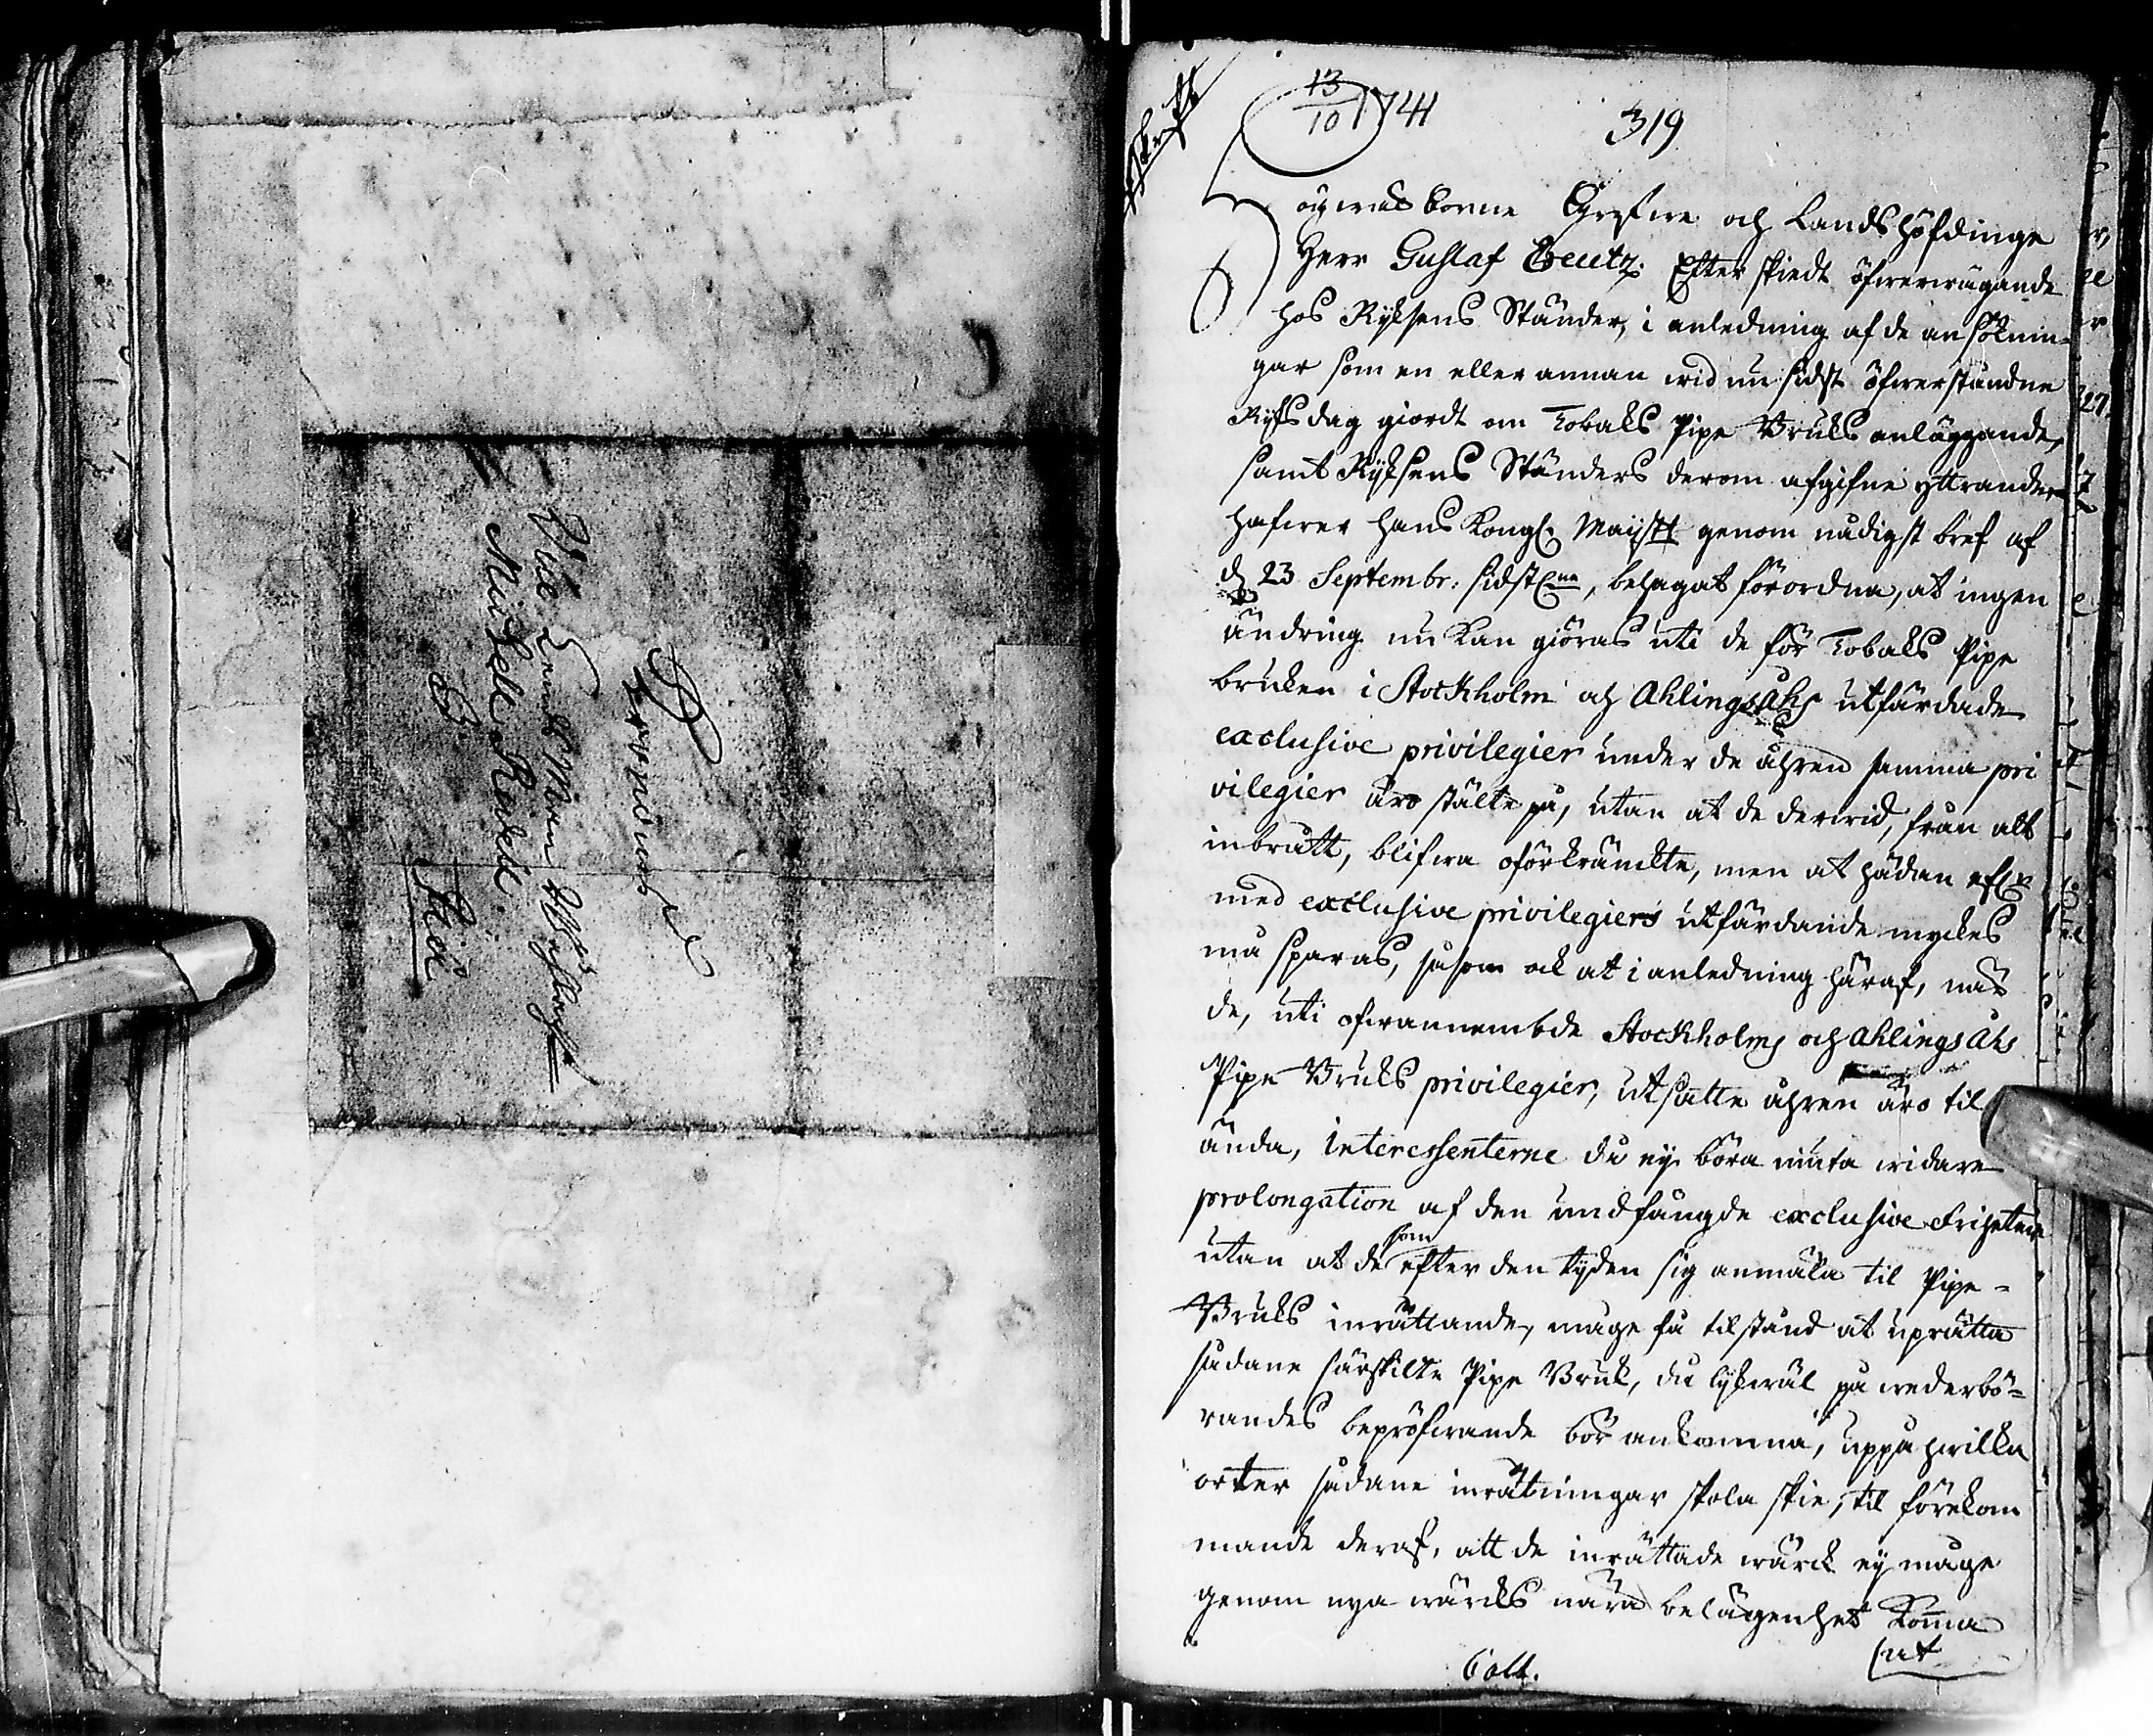 Wäl
Nu
Herwerd
13
10 1741
319
Högwälborne Grefwe och Landshöfdinge
Herr Gustaf Creutz. Efter skiedt öfwerwägande
hos Ryksens Ständer, i anledning af de ansöknin-
gar som en eller annan wid nu sidst öfwerståndne
Ryksdag giordt om Tobaks Pipe Bruks anläggande,
samt Ryksens Ständers derom afgifne yttrande
hafwer Hans Kongl. Maijtt genom nådigst bref af
d 23 Septembr: sidstlne, behagat förordna, at ingen
ändring nu kan giöras uti de för Tobaks Pipe
bruken i Stockholm och Ahlingsåhs utfärdade
exclusive privilegier under de åhren samma pri
vilegier äro stälte på, utan at de derwid, från alt
inbrått, blifwa oförkränckte, men at hädan efter
med exclusive privilegiers utfärdande myckes
må sparas, såsom ock at i anledning häraf, när
de, uti ofwannembde Stockholms och Ahlingsåhs
Pipe Bruks privilegier, utsatte åhren äro til
ända, interessenterne då ey böra niuta widare
prolongation af den undfångde exclusive friheten
utan at de som efter den tyden sig anmäla til Pipe-
Bruks inrättande, måge få tilstånd at uprätta
sådane särskilte Pipe Bruk, då lykwäl på wederbö-
randes bepröfwande bör ankomma, uppå hwilka
orter sådane inrätningar skola skie, til förekom
mande deraf, att de inrättade wärck ey måge
genom nya wärcks nära belägenhet komma
Coll.